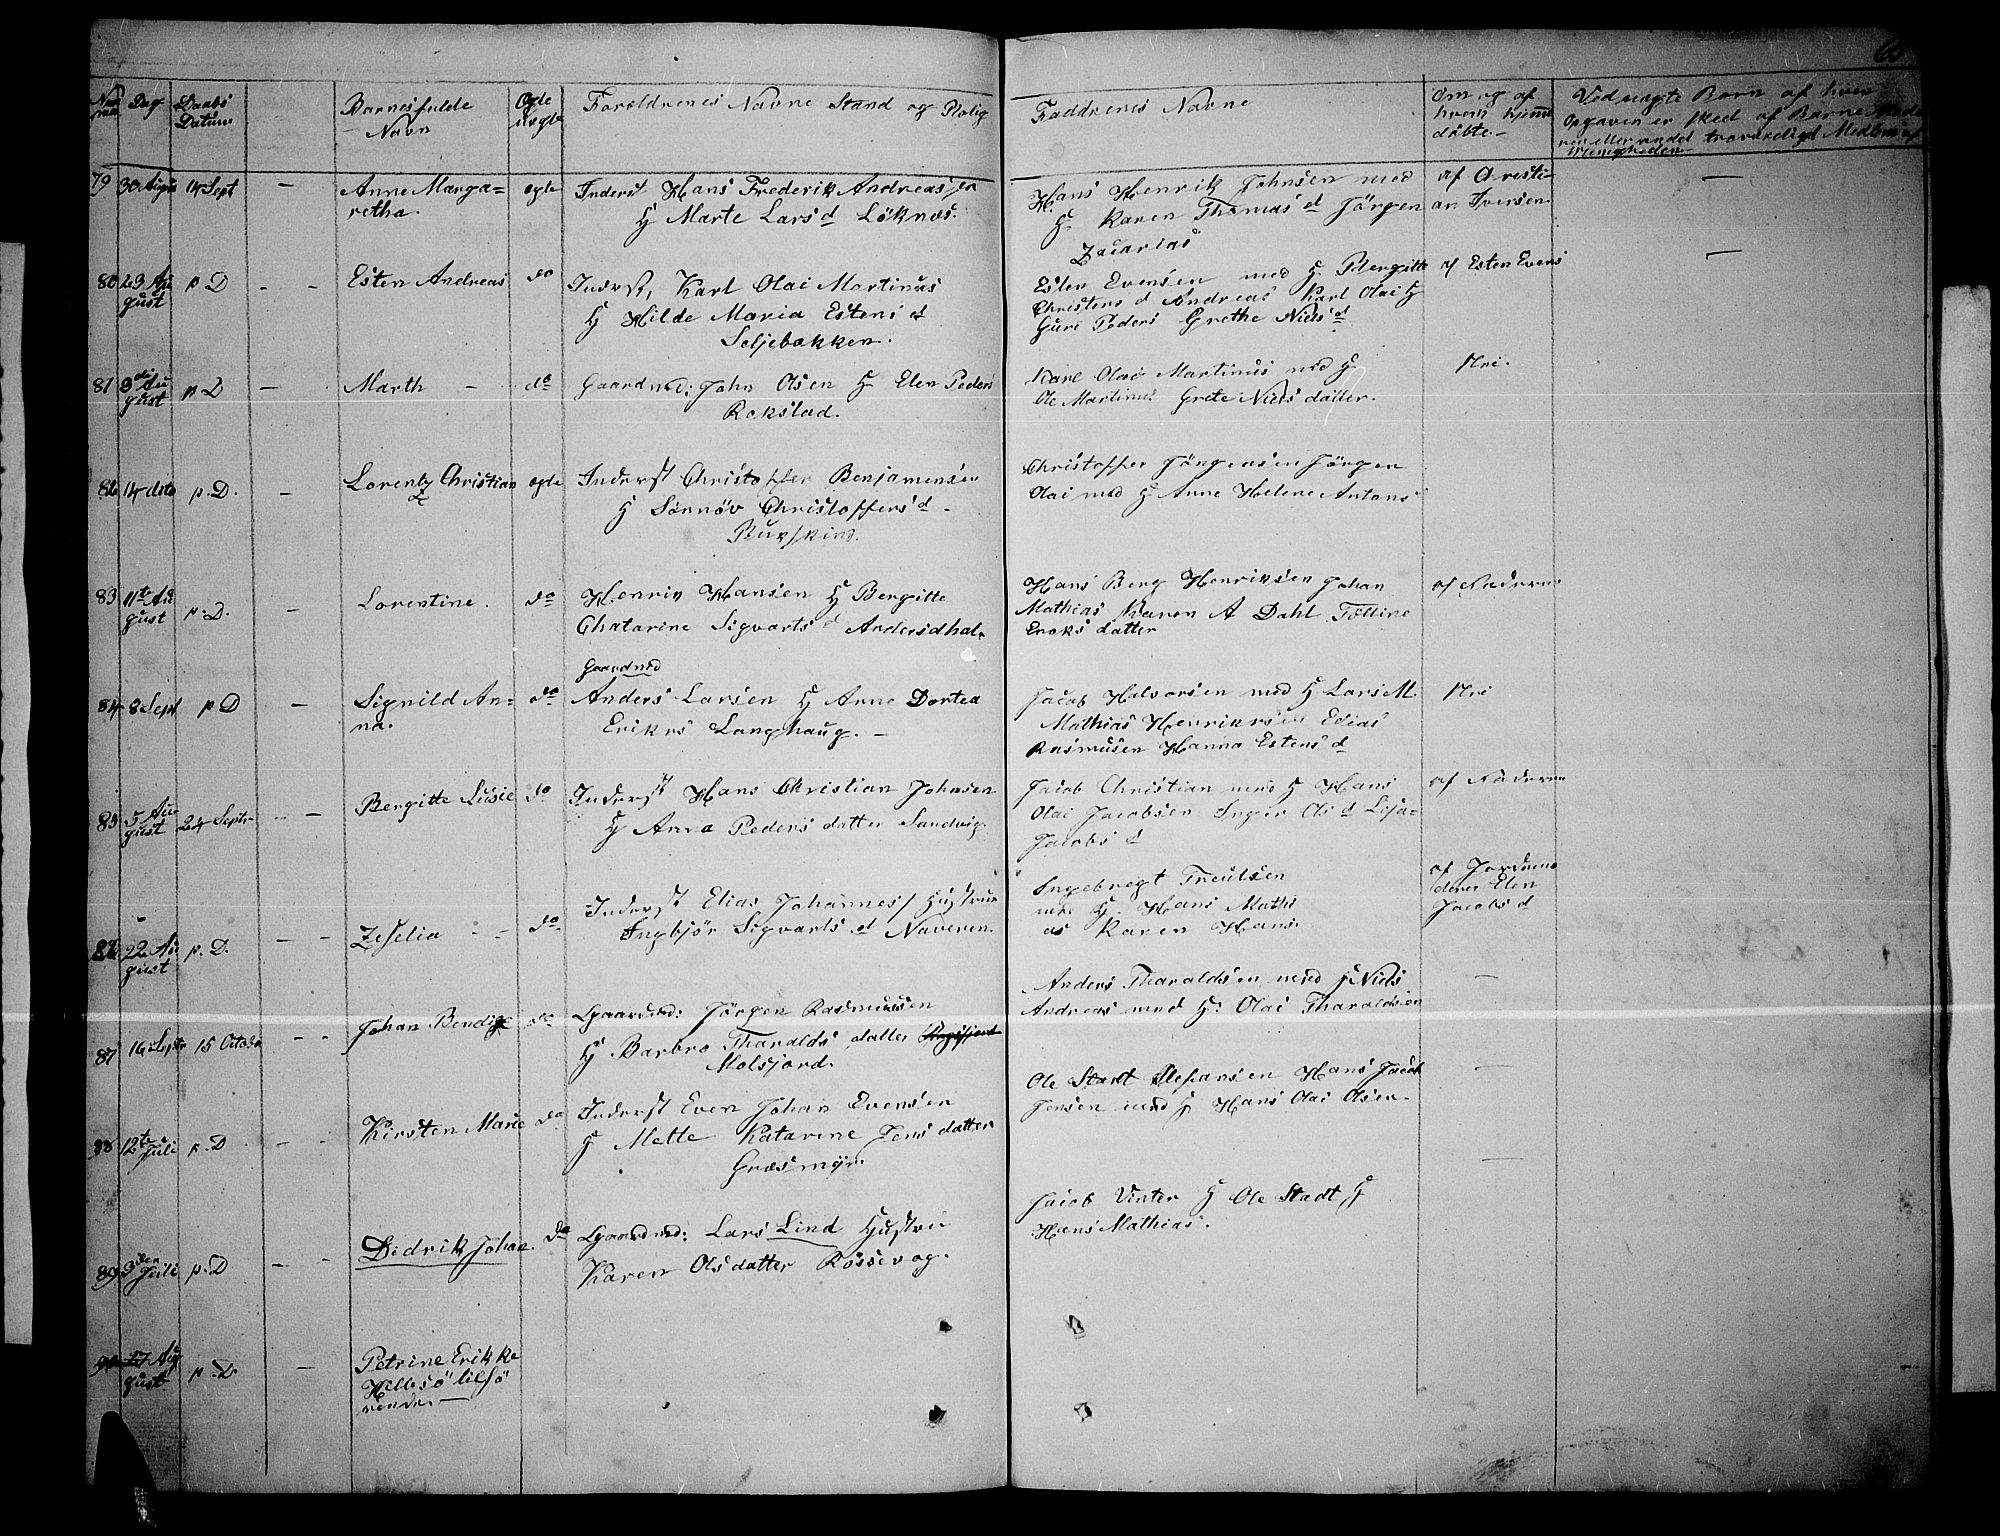 Dag
Daabs
Datum
Barnesfulde
Navn
Ogte
uægte
Forældrenes Navne Stand og Bolig
Faddrenes Navne
Om og af
hvem hjemme
døbte.
Ved uægte Barn af hvem
Opgaven er skeed af Barne
eller andet troværdigt Medlem af
Menigheden.
79 30 August 14 Sept —
Anne Marga=
retha.
ogte
Inderst Hans Frederik Andreas
H Marte Lars d Löknæs.
Hans Henrik Johnsen med
H Karen Thomas d Jörgen
Zacarias
af Cresti=
an Iversen
—
80 23 Au
gust
p D - -
Esten Andreas
do
Inderst, Karl Olai Martinus
H Hilde Maria Estens d
Seljebakken.
Esten Evensen med H. Bergitte
Christens d Andreas Karl Olai H
Guri Peders Grethe Niels d
af Esten Evens
—
81 3die Au
gust
p D —
Marth -
do
Gaardmd: John Olsen H Elen Peders
Rokstad.
Karl Olai Martinus med H
Ole Martinus Grete Niels datter.
Nei.
14 dito p. D. -
Lorentz Christian
ogte
Inderst Christoffer Benjamensen
H Sönnöv Christoffers d -
Burskind.
Christoffer Jörgensen Jörgen
Olai med H Anne Helene Antons
83 11te Au
gust
p. D. -
Lorentine.
do
Henrik Hansen H Bergitte
Chatarine Sigvarts d Andersdhal.
Hans Berg Henriksen Johan
Mathias Karen A Dahl Tolline
Enoks datter
af Faderen
84 8 Sept p D -
Signild An=
na.
do
Gaardmd
Anders Larsen H Anne Dortea
Erikks Langhaug. -
Jacob Halvorsen med H Lars M.
Mathias Henriksen Elias
Rasmusen Hanna Estens d
Nei
85 5 Au
gust
24 Septr - -
Bergitte Lusie
do
Inderst Hans Christian Johnsen
H Anna Peders datter Sandvig.
Jacob Christian med H Hans
Olai Jacobsen Inger Ols d Lisa=
Jacobs d
af Faderen
22 Au
gust
p. D. - -
Zeselia - -
do
Inderst Elias Johannes Hustrue
Ingbjör Sigvarts d Naveren.
Ingebregt Treulsen
med H. Hans Mathi
as Karen Hans.
af Jordemo
deren Elen
Jacobs d
87 16 Septr 15 Octobr - -
Johan Bendig
do
Gaardmd: Jörgen Rasmussen
H Barbro Tharalds datter
Molsjord.
Anders Tharaldsen med H Niels
Andreas med H: Olai Tharaldsen
—
88 12te
Juli
p. D - -
Kirsten Marie
do
Inderst Even Johan Evensen
H Mette Katarine Jens datter
Græsmyr.
Ole Stadt Stefansen Hans Jacob
Jensen med H Hans Olai Olsen.
—
89 3die
Juli
p. D - -
Didrik Johan.
do
Gaardmd: Lars Lind Hustru
Karen Olsdatter Rössevog.
Jacob Vinter H Ole Stadt H
Hans Mathias.
—
27 Aug
gust
p. D. -
Petrine Erikke